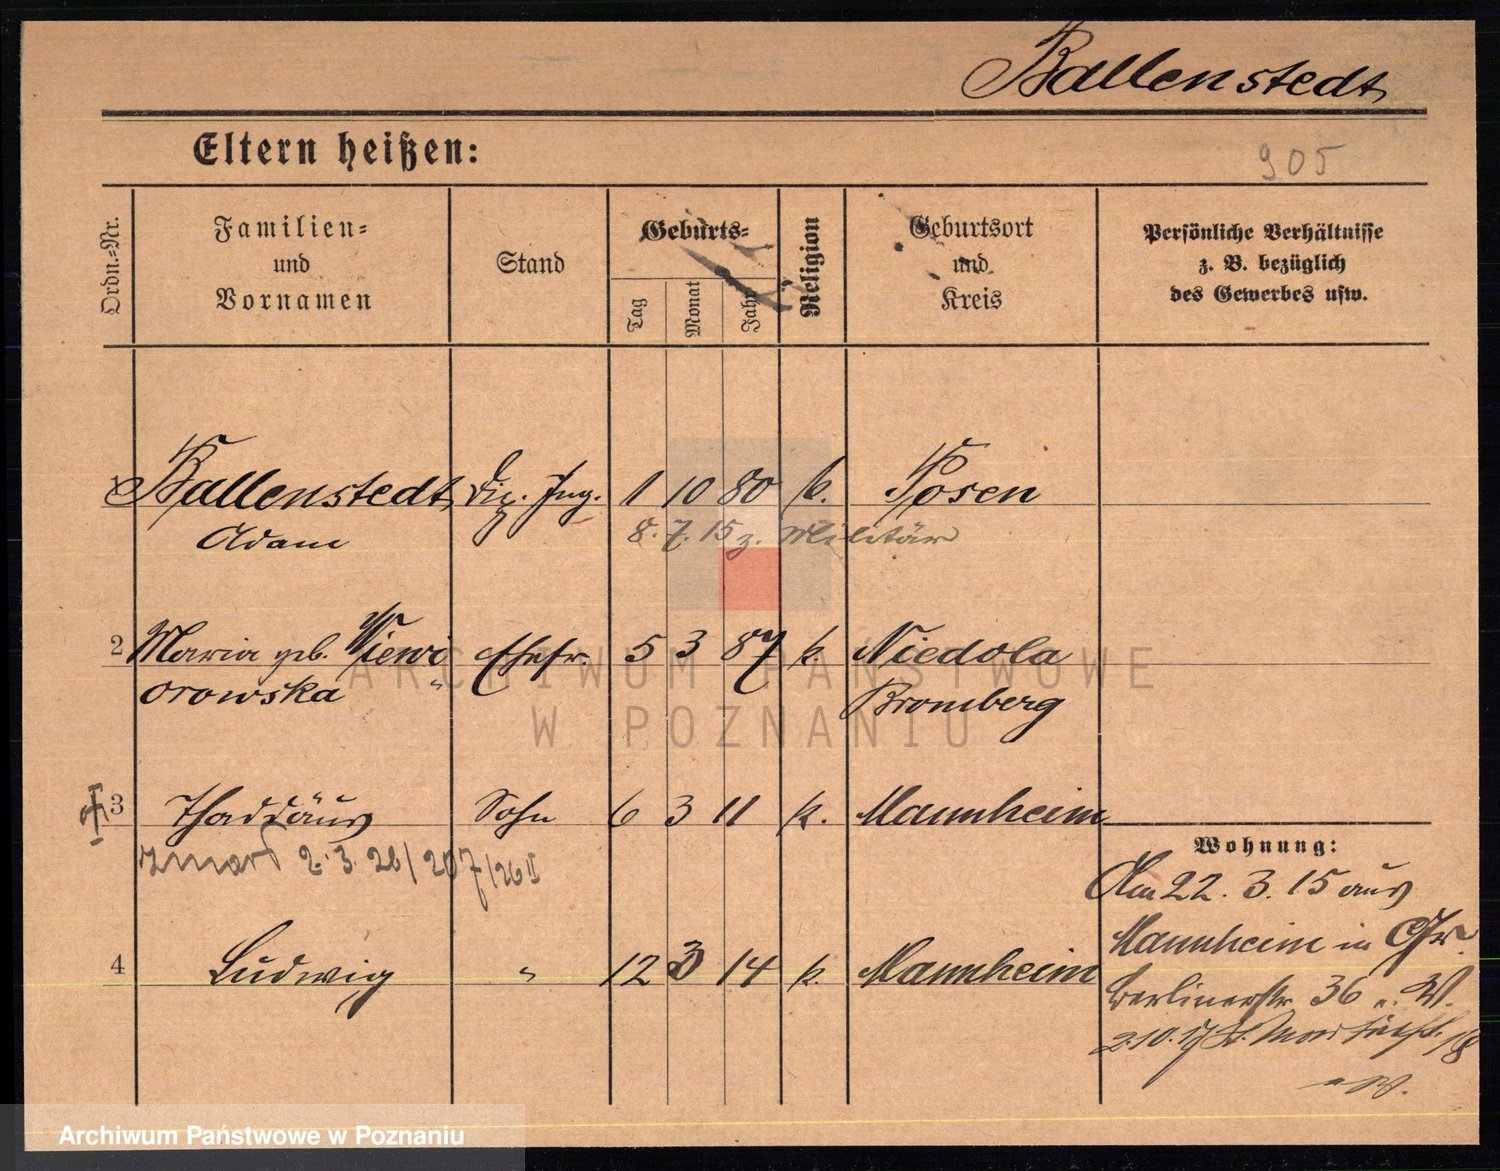 Ballenstedt
Eltern heißen:
905
Ordn.-Nr.
Familien-
und
Vornamen
Stand
Geburts-
Tag
Monat
Jahr
Religion
Geburtsort
und
Kreis
Persönliche Verhältnisse
z. B. bezüglich
des Gewerbes usw.
1 Ballenstedt Dip. Ing. 1 10 80 k. Posen
Adam
8. 7. 15 z. Militär
2 Maria geb. Wiewi Ehefr. 5 3 87 k. Niedola
orowska " Bromberg
3 Thaddäus Sohn 6 3 11 k. Mannheim
zmarł 2. 3. 26/207/26 II
4 Ludwig " 12 3 14 k. Mannheim
Wohnung:
Am 22. 3. 15 aus
Mannheim in
Berlinerstr. 36 W.
2.10.17 St. 18
W.
ARCHIWUM PAŃSTWOWE
W POZNANIU
Archiwum Państwowe w Poznaniu